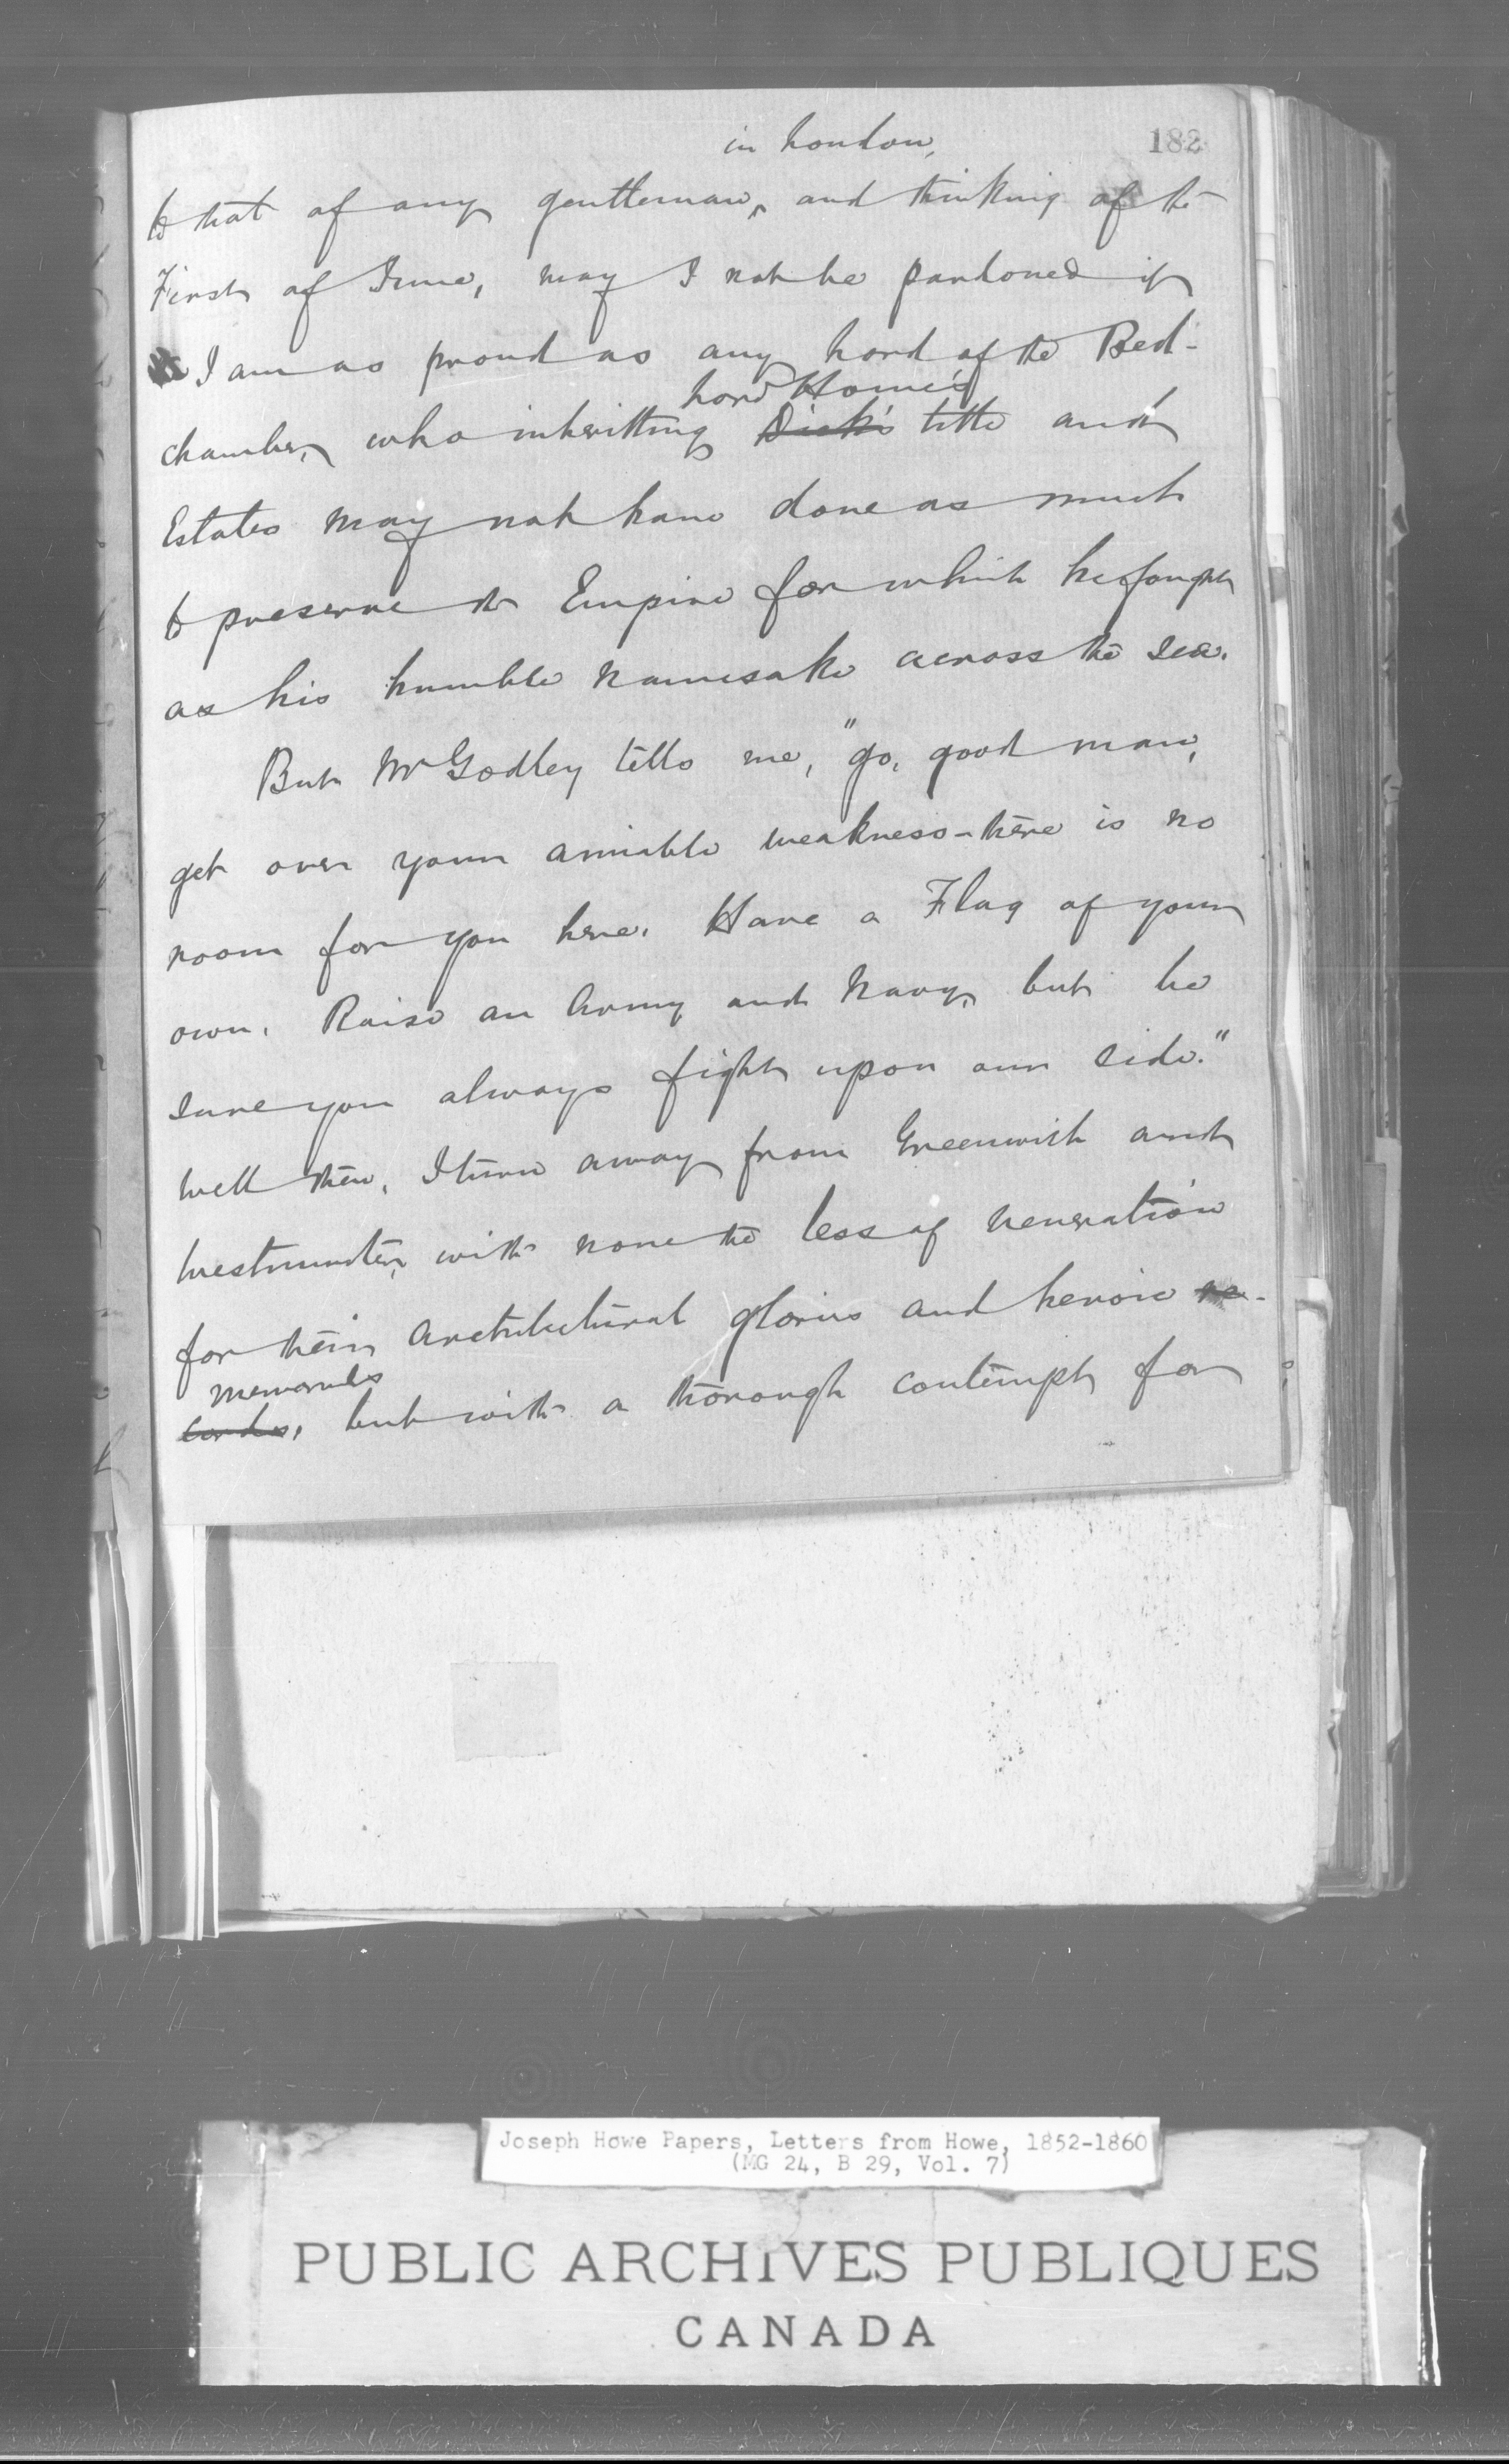 in London,
182
to that of any gentleman ^ and thinking of the
First of June, may I not be pardoned if
I am as proud as any Lord of the Bed-
Lord Howe's
chamber, who inheritting Dick's title and
Estates may not have done as much
to preserve the Empire for which he fought
as his humble namesake across the sea.
But Mr Godley tells me, "go, good man,
get over your amiable weakness - there is no
room for you here. Have a Flag of your
own. Raise an Army and Navy, but be
sure you always fight upon our side."
Well then, I turn away from Greenwich and
Westminster, with none the less of veneration
for their architectural glories and heroic re-
memorials
cords, but with a thorough contempt for
Joseph Howe Papers, Letters from Howe, 1852-1860
(MG 24, B 29, Vol. 7)
PUBLIC ARCHIVES PUBLIQUES
CANADA